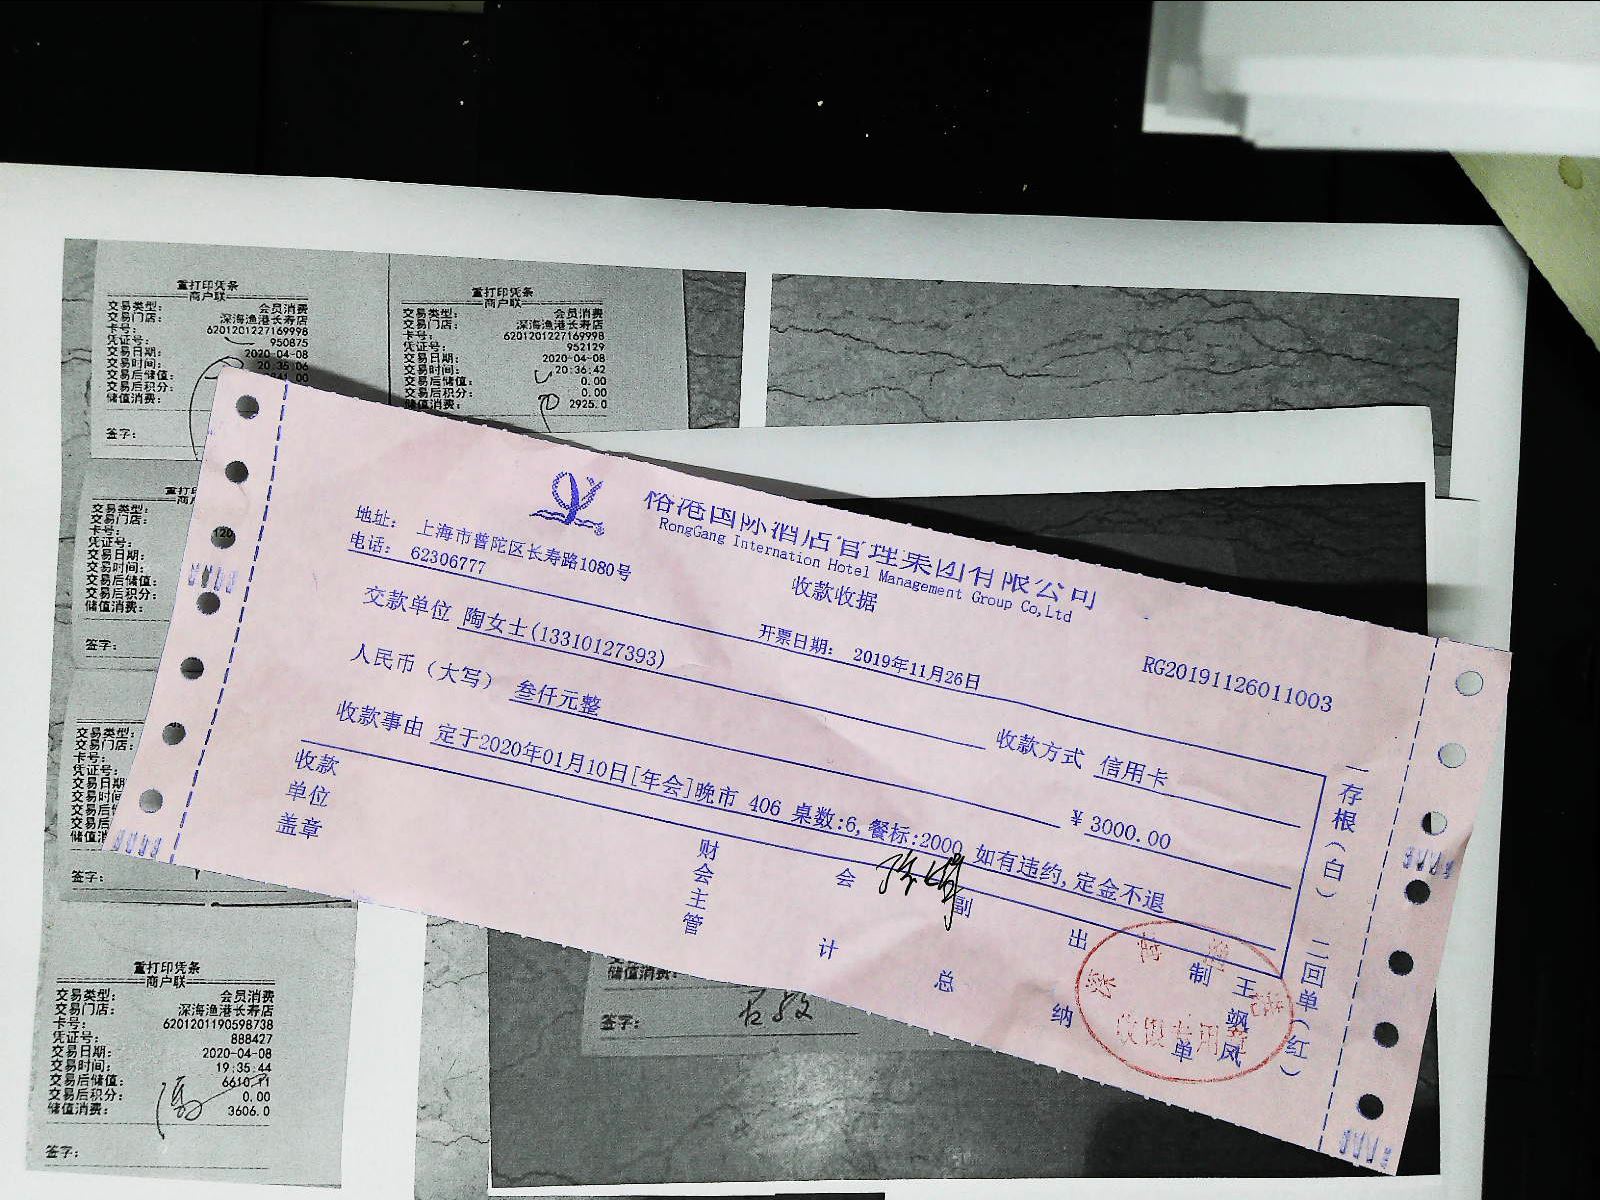 重打印凭条
商户联
交易类型： 会员消费
交易门店： 深海渔港长寿店
卡号： 6201201227169998
凭证号： 950875
交易日期： 2020-04-08
交易时间： 20:35:06
交易后储值：
交易后积分：
储值消费：
签字：
重打印凭条
商户联
交易类型： 会员消费
交易门店： 深海渔港长寿店
卡号： 6201201227169998
凭证号： 952129
交易日期： 2020-04-08
交易时间： 20:36:42
交易后储值： 0.00
交易后积分： 0.00
储值消费： 2925.0
交易类型：
交易门店：
卡号：
凭证号：
交易日期：
交易时间：
交易后储值：
交易后积分：
储值消费：
签字：
交易类型：
交易门店：
卡号：
凭证号：
交易日期
交易时
交易后
交易后
储值
签字：
重打印凭条
商户联
交易类型： 会员消费
交易门店： 深海渔港长寿店
卡号： 6201201190598738
凭证号： 888427
交易日期： 2020-04-08
交易时间： 19:35:44
交易后储值： 6610.11
交易后积分： 0.00
储值消费： 3606.0
签字：
国际酒店管理集团有限公司
RongGang Internation Hotel Management Group Co,Ltd
地址： 上海市普陀区长寿路1080号
电话： 62306777
收款收据
开票日期： 2019年11月26日
RG20191126011003
交款单位 陶女士(13310127393)
收款方式 信用卡
人民币（大写） 叁仟元整
¥ 3000.00
收款事由 定于2020年01月10日[年会]晚市 406 桌数:6,餐标:2000 如有违约,定金不退
收款单位盖章
财会主管
会计
副总
出纳
制单
王飒风
收银专用章
一存根（白） 二回单（红）
储值消费：
签字：